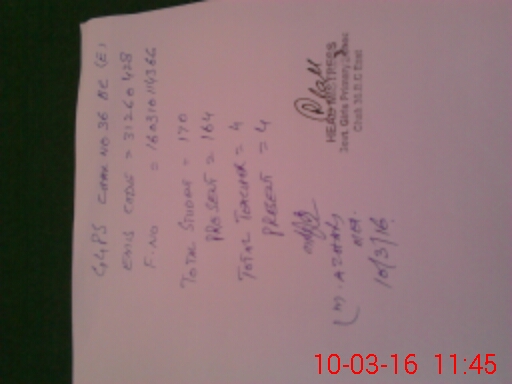 GGPS CHAK NO 36 DC (E)
EMIS CODE = 31260428
F. NO = 160310114366
TOTAL STUDENT = 170
PRESENT = 164
TOTAL TEACHER = 4
PRESENT = 4
HEAD MISTRESS
Govt. Girls Primary
Chak 36 D.C East
(M. AZHAR)
10/3/16
10-03-16 11:45